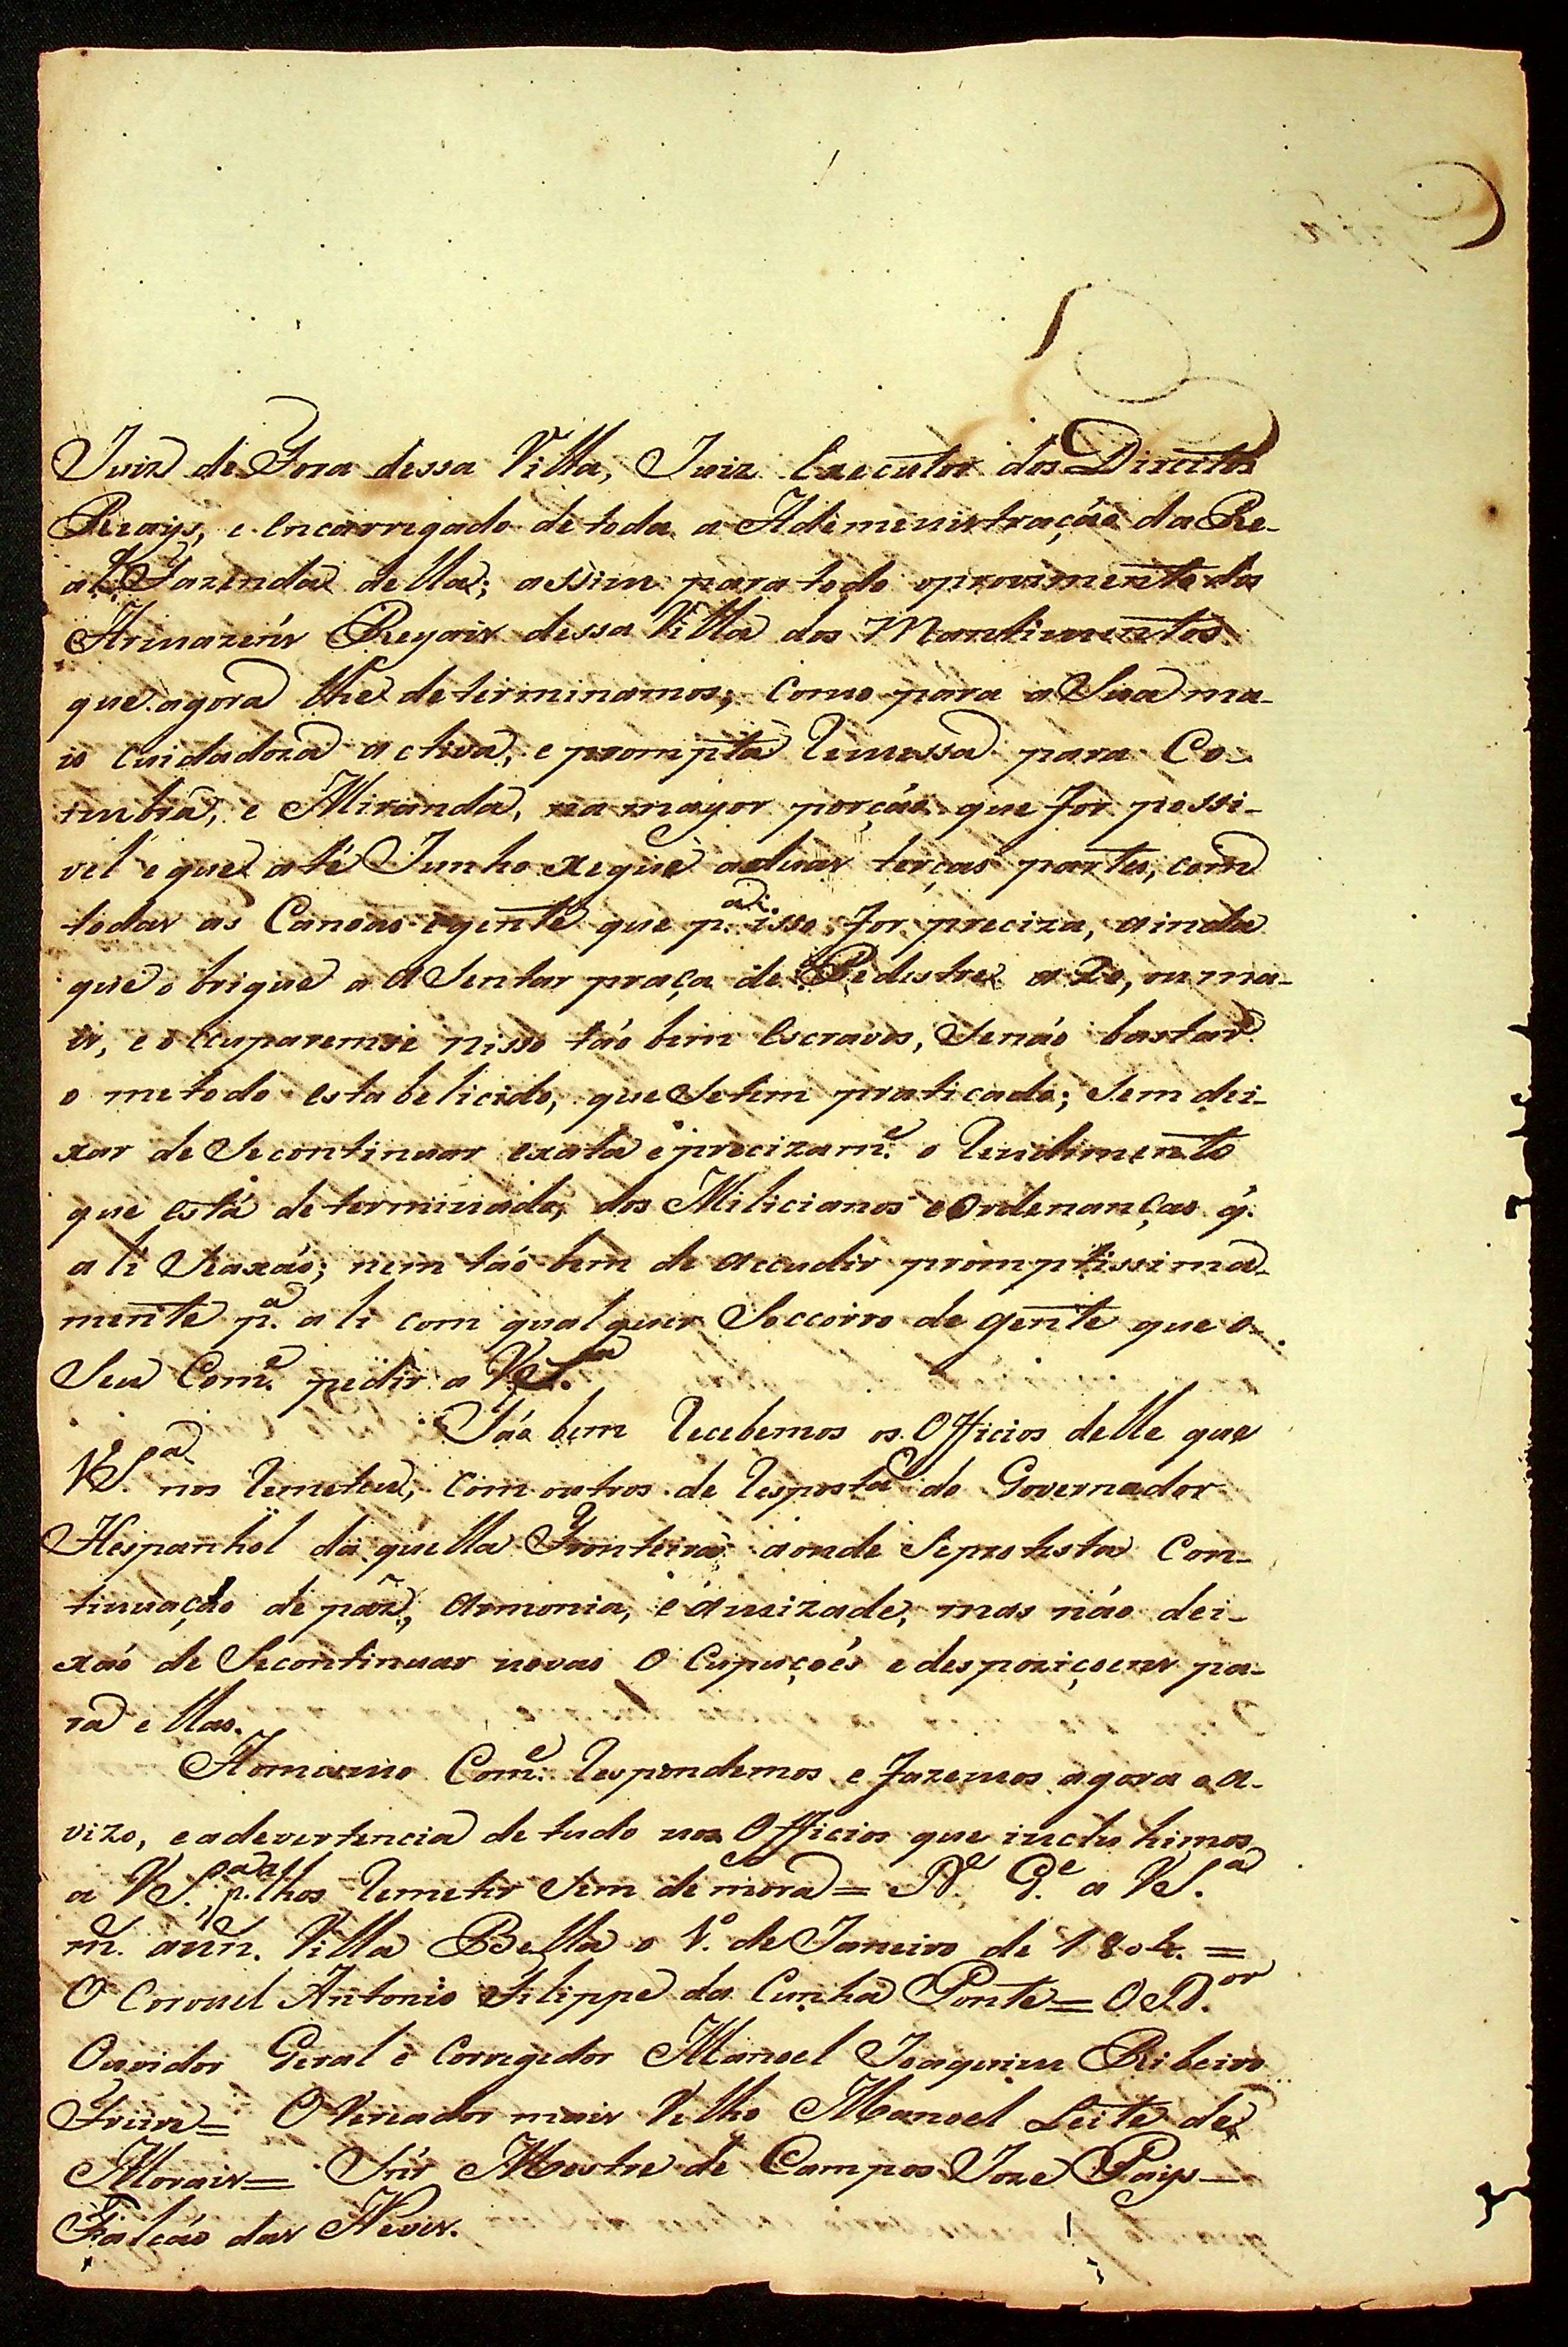 Juiz de Fora dessa Villa, Juiz Executor dos Direitos
Reays, e encarregado de toda aAdemenistração da Re-
al Fazenda della; assim para todo o provimento dos
Armazens Reyais dessa Villa dos Mantimentos
que agora lhe determinamos; como para a Sua ma-
is cuidadoza activa, e prompta remessa para Co-
imbra, e Miranda, na mayor porção que for possi-
vel e que até Junho xegue aduas terças partes, com
todas as Canoas e gente que p.ª isso for preciza, ainda
que obrigue a aSentar praça de Pedestre a 20, ou ma-
is, e occuparemse nisso tão bem Escravos, Senão bastar
o metodo estabelicido, que Setem praticado; Sem dei-
xar de Secontinuar exata e precizam.e o rendimento
que está determinado, dos Milicianos e Ordenanças q.
ali Staxão; nem tão bem de accudir promptissima-
mente p.ª ali com qualquer Soccorro de gente que o
Seu Com.e pedir a VS.ª
Tão bem recebemos os Officios delle que
VS.ª nos remeteu, com outros de resposta do Governador
Hespanhol da quella Fronteira aonde Seprotesta Con-
tinuação de paz, armonia, e amizade; mas não dei-
xão de Secontinuar novas Ocupações e despoziçoens pa-
ra ellas.
Aomesmo Com.e respondemos, e fazemos agora o a-
vizo, e adevertencia de tudo nos Officios que incluhimos
a VS.ª p.ª lhos remeter Sem demora = D.e G.e a VS.ª
m. ann. Villa Bella o 1.º de Janeiro de 1804. =
O Coronel Antonio Filippe da Cunha Ponte = O D.or
Ouvidor Geral e Corregedor Manoel Joaquim Ribeiro
Freire = O Vereador mais Velho Manoel Leite de
Morais = Snr Mestre de Campos Joze Pays
Falcão das Neves.